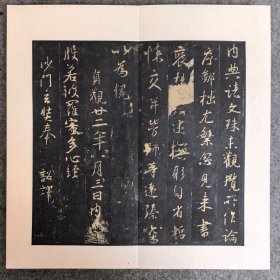 内典諸文殊未觀攬所作論
序鄙拙尤繁忽見來書
褒述撫躬自省慙
悚交并勞師等遠臻深
以為愧
貞觀廿二年八月三日内
般若波羅蜜多心經
沙門玄奘奉 詔譯